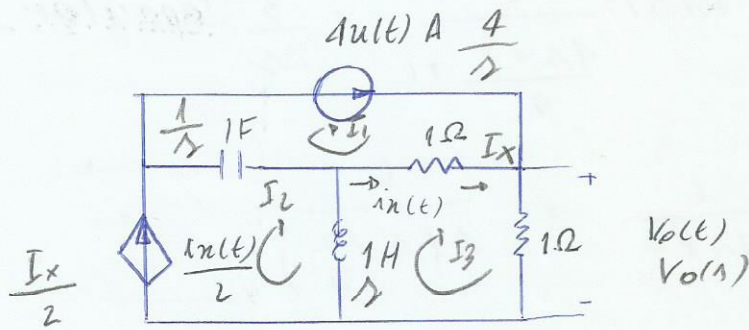 4u(t) A 4/s
1/s 1F I1 1Ω Ix
I2 ix(t) +
Ix/2 ix(t)/2 1H s I3 1Ω Vo(t)
Vo(s)
-